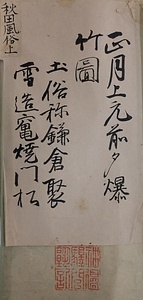 秋田風俗上
正月上元前夕爆
竹圖
土俗称鎌倉聚
雪造竃燒门松